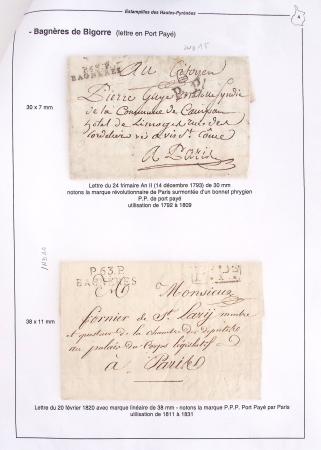 Estampilles des Hautes-Pyrénées
- Bagnères de Bigorre (lettre en Port Payé)
30 x 7 mm
P.63.P.
BAGNERES
P.P.
Au Citoyen
Pierre
de la Commune de Campan
hotel de Limoges rue des
Cordeliers
A Paris
Lettre du 24 frimaire An II (14 décembre 1793) de 30 mm
notons la marque révolutionnaire de Paris surmontée d'un bonnet phrygien
P.P. de port payé
utilisation de 1792 à 1809
38 x 11 mm
P.63.P.
BAGNERES
P.P.P.
Monsieur
Fornier de St. Lary membre
et questeur de la chambre des députés
au palais du Corps législatif
à Paris
Lettre du 20 février 1820 avec marque linéaire de 38 mm - notons la marque P.P.P. Port Payé par Paris
utilisation de 1811 à 1831